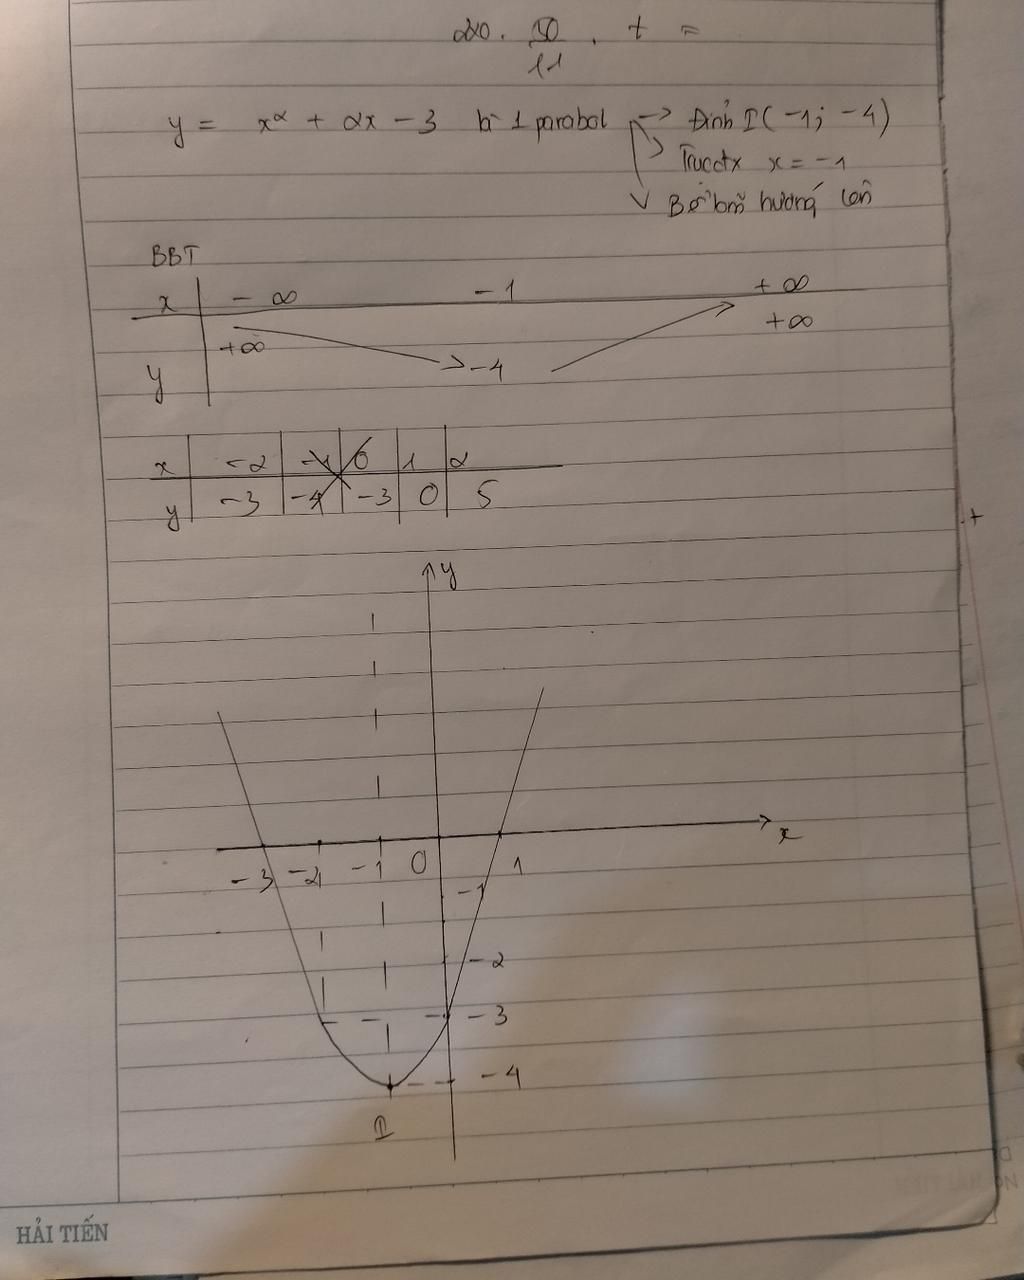 y = x² + 2x - 3 là 1 parabol → Đỉnh I( -1; -4)
Trục đx x = -1
Bề lõm hướng lên
BBT
x - ∞ -1 + ∞
+∞ -4 +∞
y
x -2 -1 0 1 2
y -3 -4 -3 0 5
y
x
-3 -2 -1 0 1
-1
-2
-3
-4
I
HẢI TIẾN